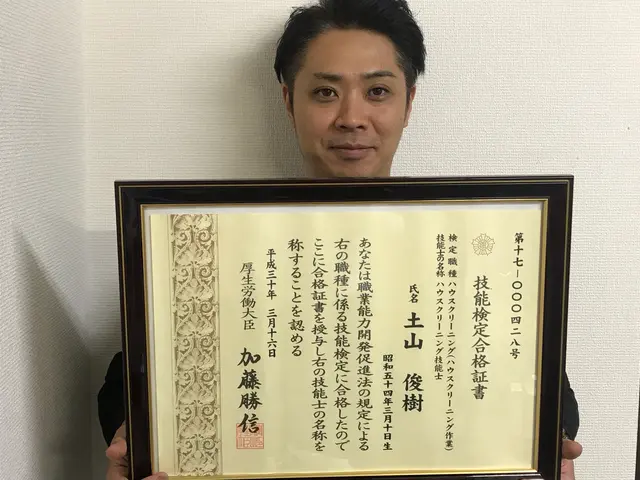 第十七-〇〇〇四二八号
技能検定合格証書
検定職種 ハウスクリーニング(ハウスクリーニング作業)
技能士の名称 ハウスクリーニング技能士
氏名 土山 俊樹
昭和五十四年三月十日生
あなたは職業能力開発促進法の規定による
右の職種に係る技能検定に合格したので
ここに合格証書を授与し右の技能士の名称を
称することを認める
平成三十年 三月十六日
厚生労働大臣 加藤勝信